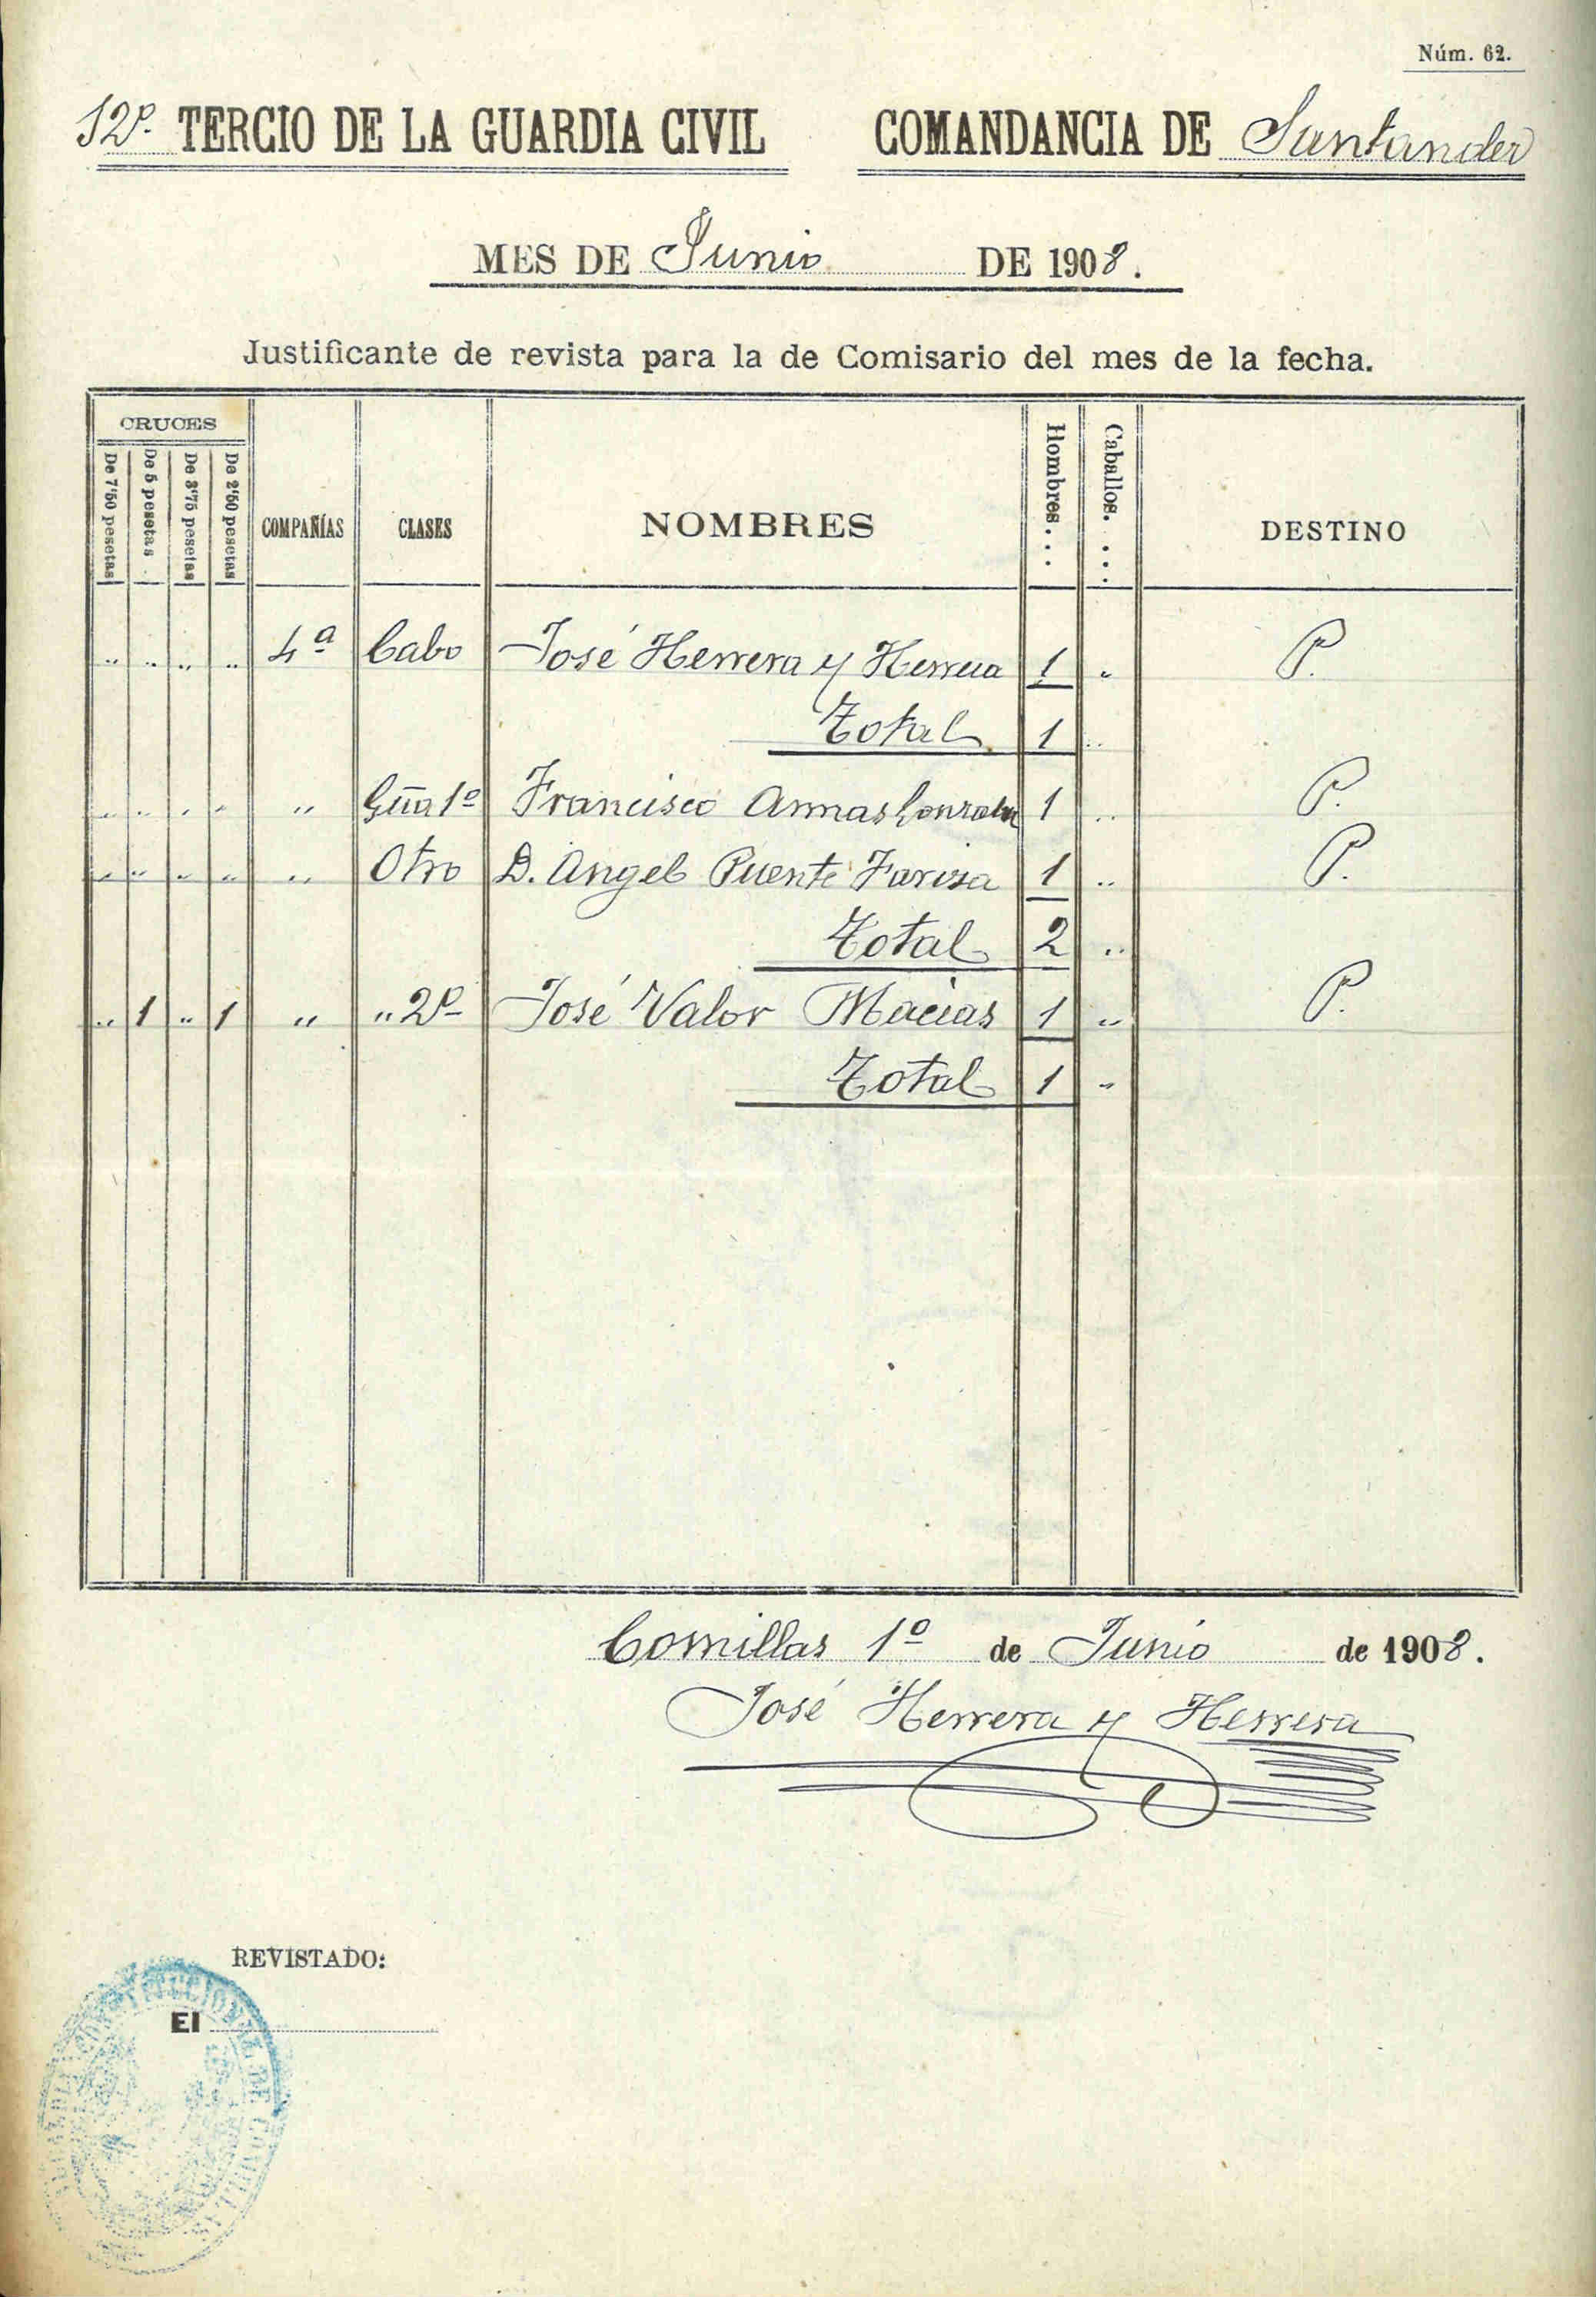 Núm. 62.
12º TERCIO DE LA GUARDIA CIVIL COMANDANCIA DE Santander
MES DE Junio DE 1908.
Justificante de revista para la de Comisario del mes de la fecha.
CRUCES
De 7'50 pesetas De 5 pesetas De 3'75 pesetas De 2'50 pesetas COMPAÑÍAS CLASES NOMBRES Hombres... Caballos.... DESTINO
" " " " 4ª Cabo José Herrera y Herrera 1 " P.
Total 1 "
" " " " " Gũa 1º Francisco Armas Gonzalez 1 " P.
" " " " " Otro D. Angel Puente Fariza 1 " P.
Total 2 "
" 1 " 1 " " 2º José Valor Macias 1 " P.
Total 1 "
Comillas 1º de Junio de 1908.
José Herrera y Herrera
REVISTADO:
El
DE